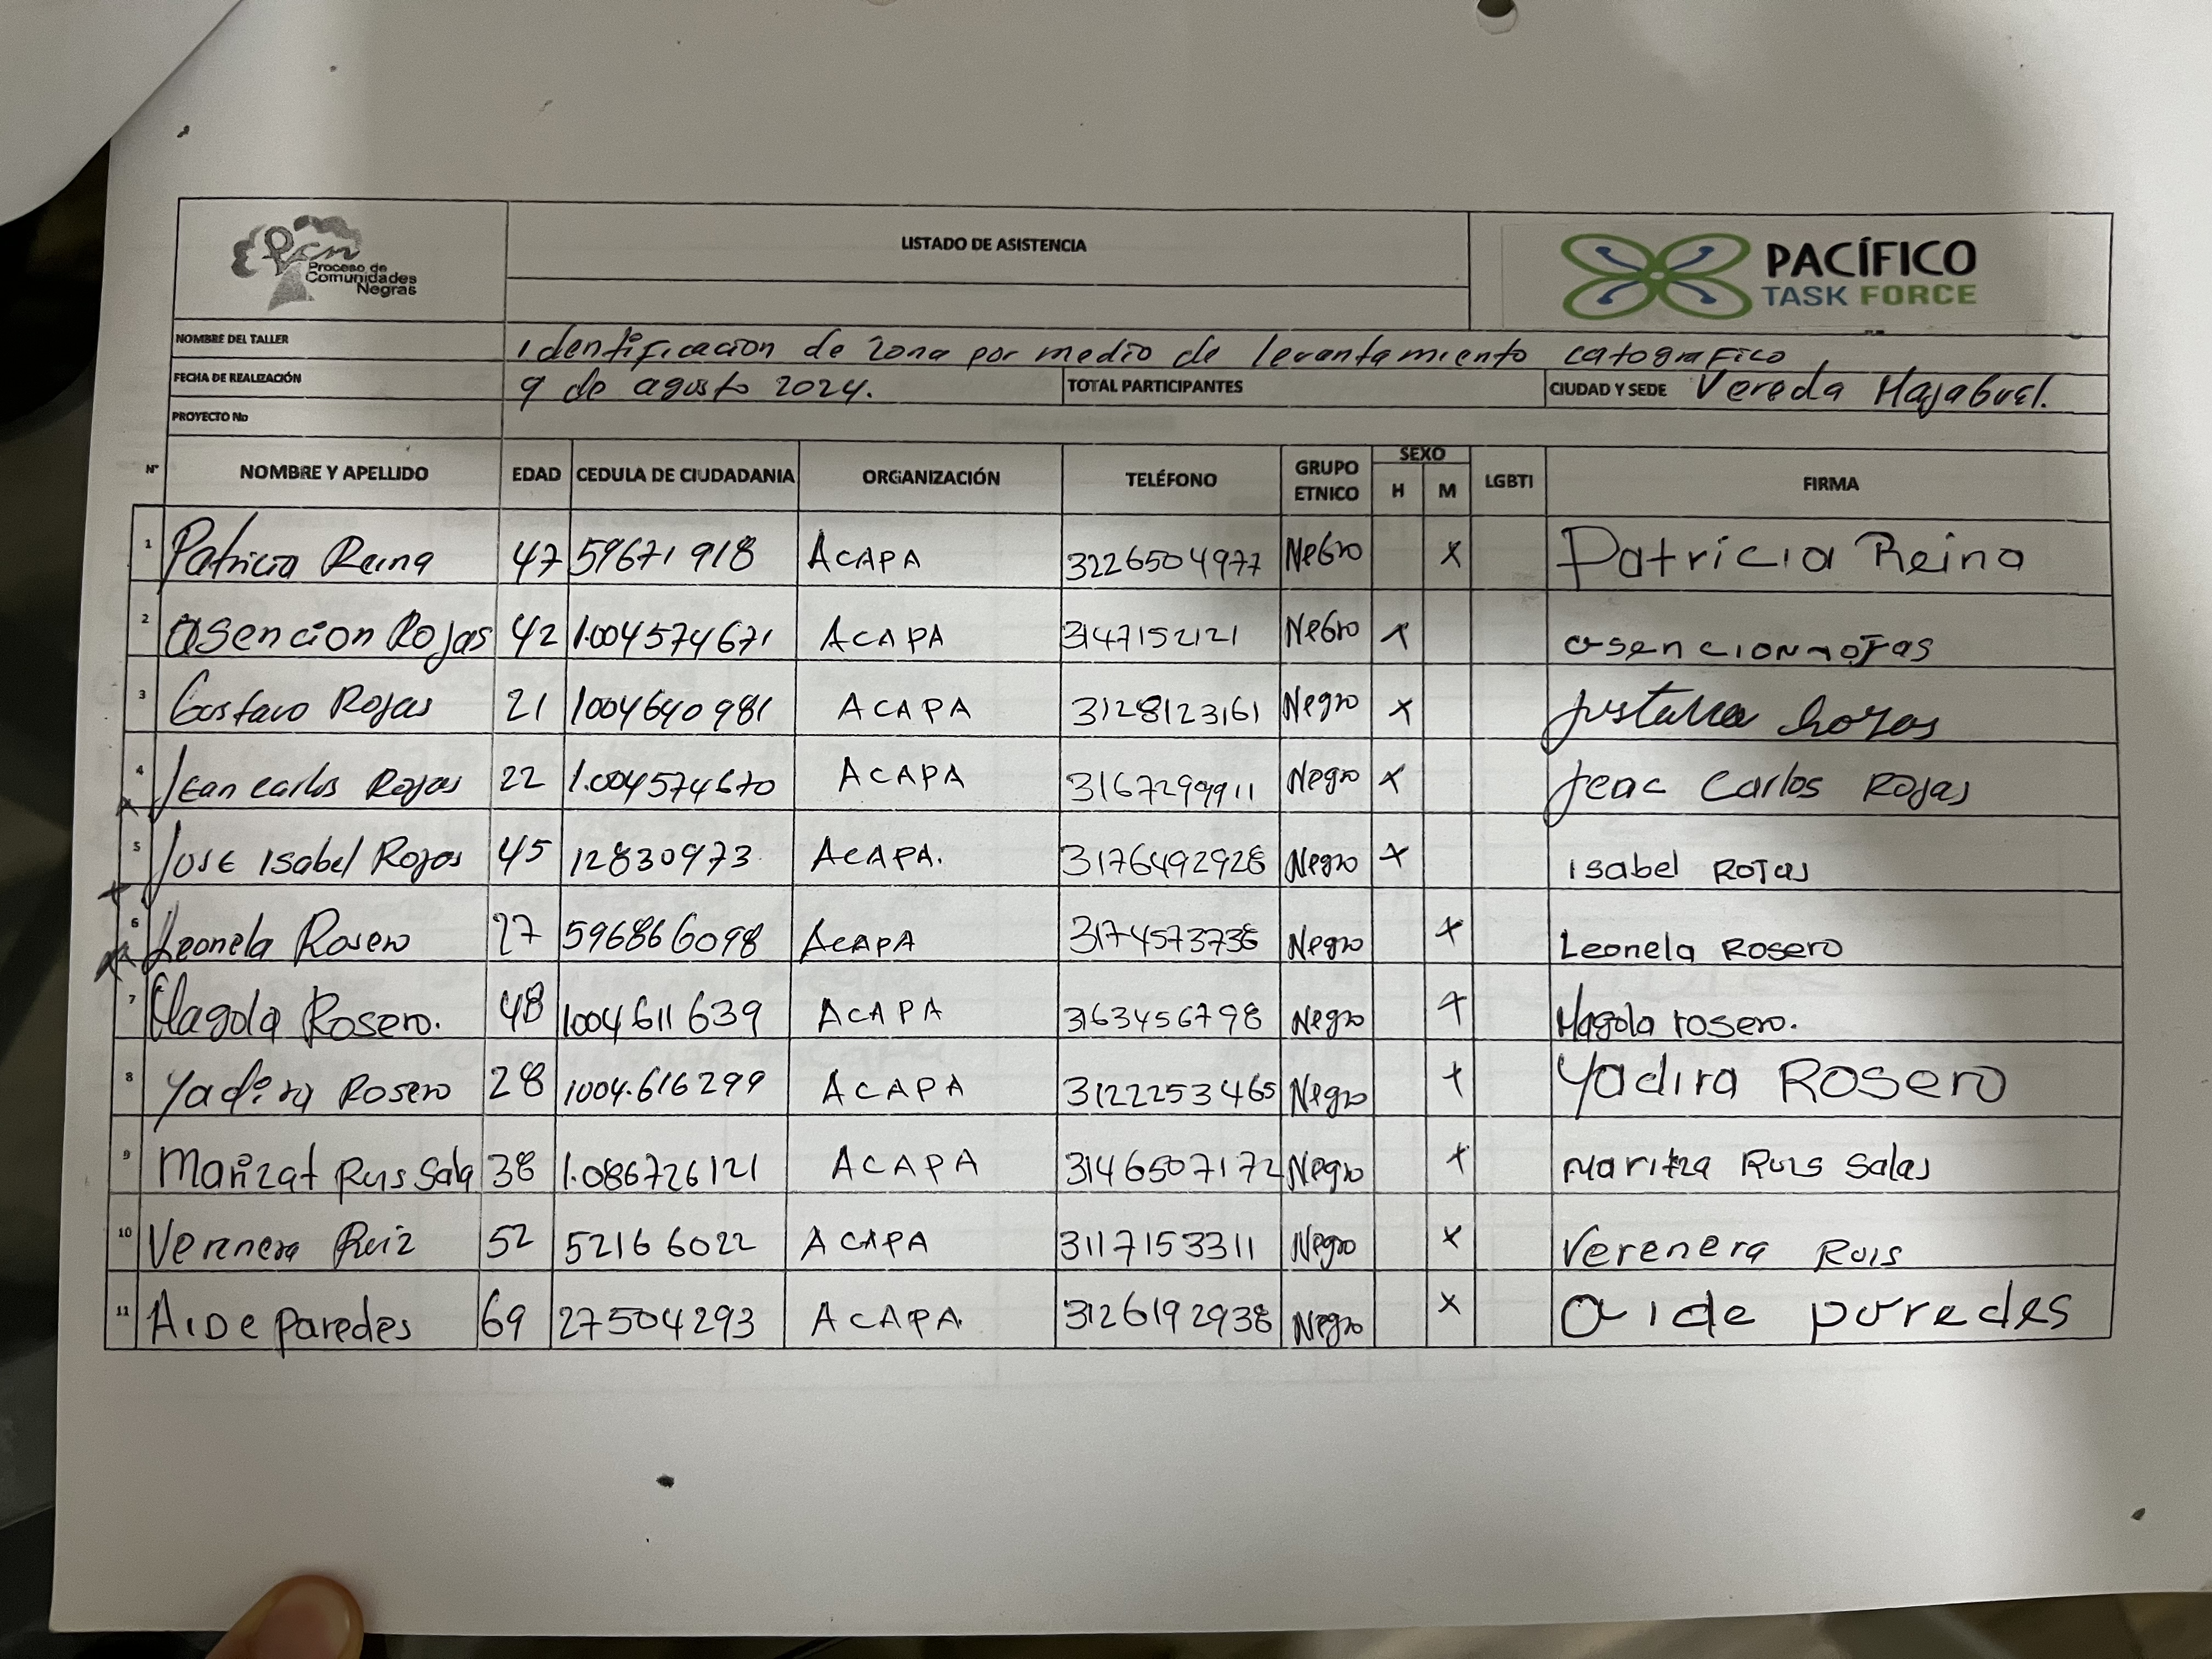 Pcn
Proceso de
Comunidades
Negras
LISTADO DE ASISTENCIA
PACÍFICO
TASK FORCE
NOMBRE DEL TALLER Identificacion de zona por medio de levantamiento catografico
FECHA DE REALIZACIÓN 9 de agosto 2024. TOTAL PARTICIPANTES CIUDAD Y SEDE Vereda Majagual.
PROYECTO No
N° NOMBRE Y APELLIDO EDAD CEDULA DE CIUDADANIA ORGANIZACIÓN TELÉFONO GRUPO ETNICO SEXO H M LGBTI FIRMA
1 Patricia Reina 47 59671918 ACAPA 3226504977 Negro x Patricia Reina
2 Asencion Rojas 42 1.004574671 ACAPA 3147152121 Negro x asencion rojas
3 Gustavo Rojas 21 1004640981 ACAPA 3128123161 Negro x
4 Jean carlos Rojas 22 1.004574670 ACAPA 3167299911 Negro x Jeac Carlos Rojas
5 Jose Isabel Rojas 45 12830973 ACAPA. 3176492928 Negro x Isabel Rojas
6 Leonela Rosero 27 596866098 ACAPA 3174573738 Negro x Leonela Rosero
7 Magola Rosero. 48 1004611639 ACAPA 3163456798 Negro x Magola rosero.
8 Yadira Rosero 28 1004.616299 ACAPA 3122253465 Negro x Yadira Rosero
9 Marizat Ruis Sala 38 1.086726121 ACAPA 3146507172 Negro x Maritza Ruis Salas
10 Verenera Ruiz 52 52166022 ACAPA 3117153311 Negro x Verenera Ruis
11 Aide Paredes 69 27504293 ACAPA. 3126192938 Negro x aide paredes